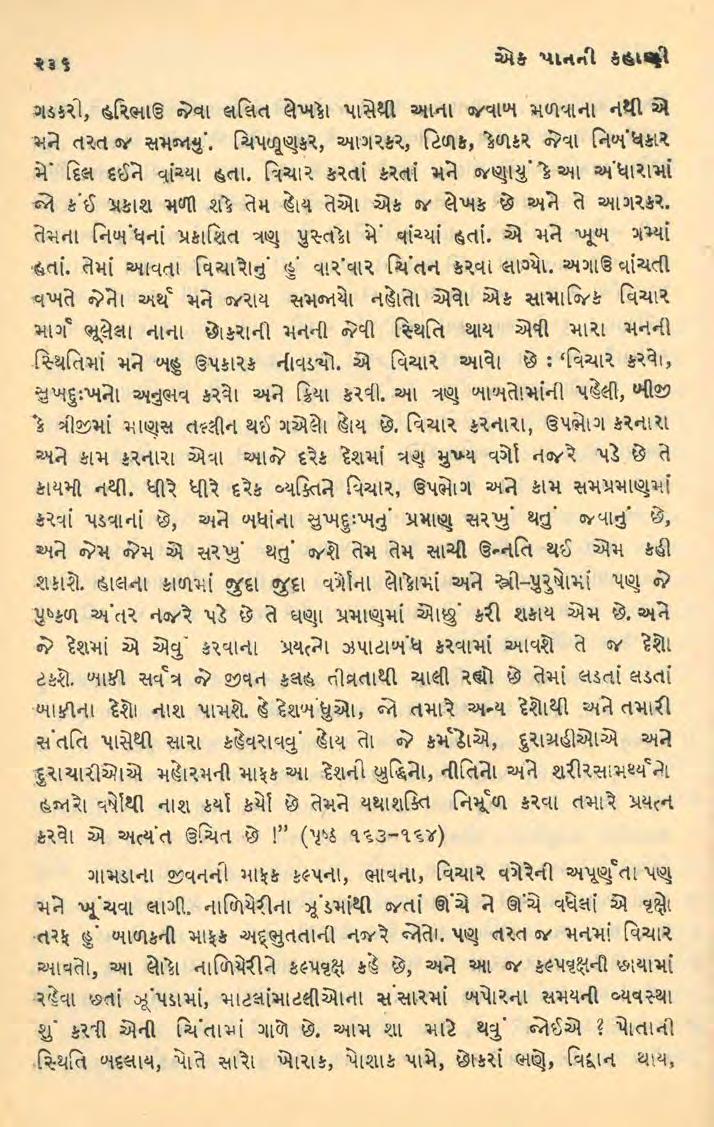 ૨૩૬
એક પાનની કહાણી
ગડકરી, હરિભાઉ જેવા લલિત લેખકો પાસેથી આના જવાબ મળવાના નથી એ
મને તરત જ સમજાયું. ચિપળૂણકર, આગરકર, ટિળક, કેળકર જેવા નિબંધકાર
મેં દિલ દઈને વાંચ્યા હતા. વિચાર કરતાં કરતાં મને જણાયું કે આ અંધારામાં
જો કંઈ પ્રકાશ મળી શકે તેમ હોય તેઓ એક જ લેખક છે અને તે આગરકર.
તેમના નિબંધનાં પ્રકાશિત ત્રણ પુસ્તકો મેં વાંચ્યાં હતાં. એ મને ખૂબ ગમ્યાં
હતાં. તેમાં આવતા વિચારોનું હું વારંવાર ચિંતન કરવા લાગ્યો. અગાઉ વાંચતી
વખતે જેનો અર્થ મને જરાય સમજાયો નહોતો એવો એક સામાજિક વિચાર
માર્ગ ભૂલેલા નાના છોકરાની મનની જેવી સ્થિતિ થાય એવી મારા મનની
સ્થિતિમાં મને બહુ ઉપકારક નીવડ્યો. એ વિચાર આવો છે : ‘વિચાર કરવો,
સુખદુઃખનો અનુભવ કરવો અને ક્રિયા કરવી. આ ત્રણ બાબતોમાંની પહેલી, બીજી
કે ત્રીજીમાં માણસ તલ્લીન થઈ ગએલો હોય છે. વિચાર કરનારા, ઉપભોગ કરનારા
અને કામ કરનારા એવા આજે દરેક દેશમાં ત્રણ મુખ્ય વર્ગો નજરે પડે છે તે
કાયમી નથી. ધીરે ધીરે દરેક વ્યક્તિને વિચાર, ઉપભોગ અને કામ સમપ્રમાણમાં
કરવાં પડવાનાં છે, અને બધાંના સુખદુઃખનું પ્રમાણ સરખું થતું જવાનું છે,
અને જેમ જેમ એ સરખું થતું જશે તેમ તેમ સાચી ઉન્નતિ થઈ એમ કહી
શકાશે. હાલના કાળમાં જુદા જુદા વર્ગોના લોકોમાં અને સ્ત્રી–પુરુષોમાં પણ જે
પુષ્કળ અંતર નજરે પડે છે તે ઘણા પ્રમાણમાં ઓછું કરી શકાય એમ છે. અને
જે દેશમાં એ એવું કરવાના પ્રયત્નો ઝપાટાબંધ કરવામાં આવશે તે જ દેશો
ટકશે. બાકી સર્વત્ર જે જીવન કલહ તીવ્રતાથી ચાલી રહ્યો છે તેમાં લડતાં લડતાં
બાકીના દેશો નાશ પામશે. હે દેશબંધુઓ, જો તમારે અન્ય દેશોથી અને તમારી
સંતતિ પાસેથી સારા કહેવરાવવું હોય તો જે કર્મઠોએ, દુરાગ્રહીઓએ અને
દુરાચારીઓએ મહોરમની માફક આ દેશની બુદ્ધિનો, નીતિનો અને શરીરસામર્થ્યનો
હજારો વર્ષોથી નાશ કર્યા કર્યો છે તેમને યથાશક્તિ નિર્મૂળ કરવા તમારે પ્રયત્ન
કરવો એ અત્યંત ઉચિત છે !” (પૃષ્ઠ ૧૬૩–૧૬૪)
ગામડાના જીવનની માફક કલ્પના, ભાવના, વિચાર વગેરેની અપૂર્ણતા પણ
મને ખૂંચવા લાગી. નાળિયેરીના ઝૂંડમાંથી જતાં ઊંચે ને ઊંચે વધેલાં એ વૃક્ષો
તરફ હું બાળકની માફક અદ્ભુતતાની નજરે જોતો. પણ તરત જ મનમાં વિચાર
આવતો, આ લોકો નાળિયેરીને કલ્પવૃક્ષ કહે છે, અને આ જ કલ્પવૃક્ષની છાયામાં
રહેવા છતાં ઝૂંપડામાં, માટલાંમાટલીઓના સંસારમાં બપોરના સમયની વ્યવસ્થા
શું કરવી એની ચિંતામાં ગાળે છે. આમ શા માટે થવું જોઈએ ? પોતાની
સ્થિતિ બદલાય, પોતે સારો ખોરાક, પોશાક પામે, છોકરાં ભણે, વિદ્વાન થાય,